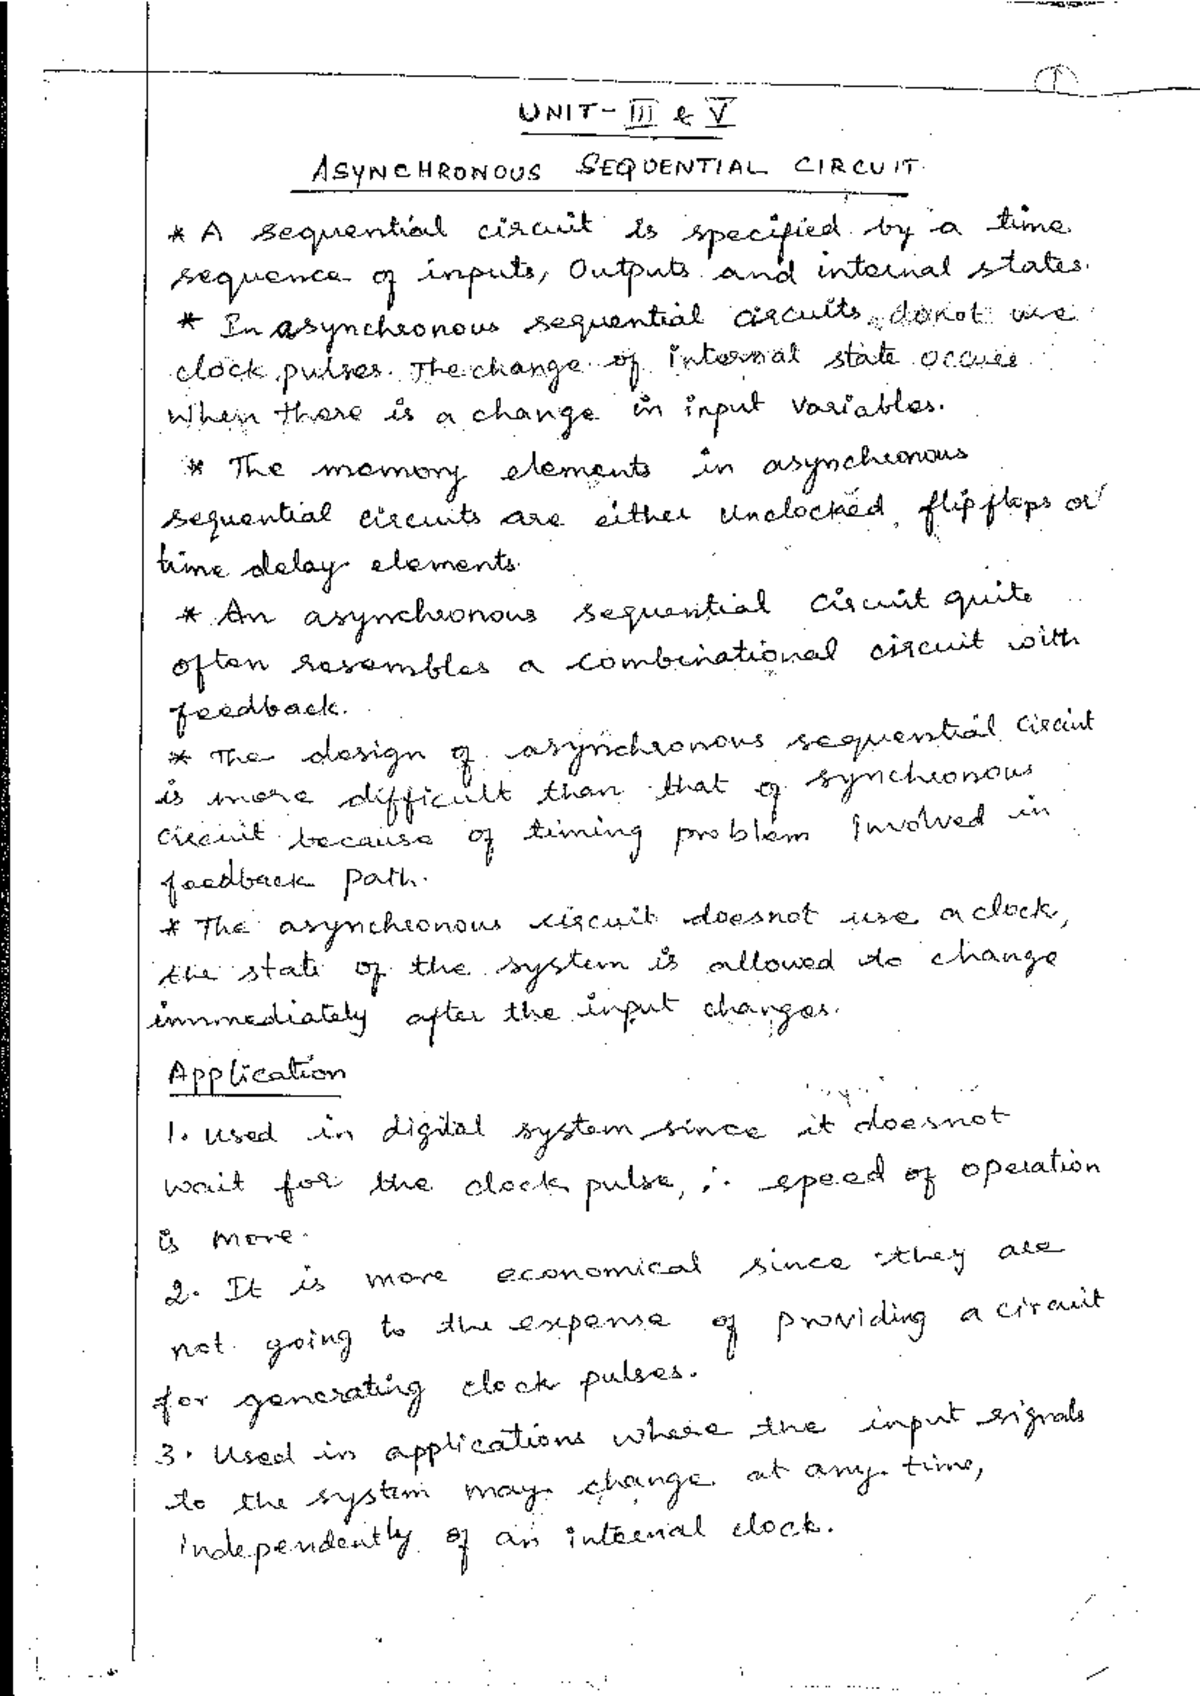 1
UNIT - III & V
ASYNCHRONOUS SEQUENTIAL CIRCUIT.
* A sequential circuit is specified by a time
sequence of inputs, Outputs and internal states.
* In asynchronous sequential circuits, donot use
clock pulses. The change of internal state occurs
when there is a change in input variables.
* The memory elements in asynchronous
sequential circuits are either unclocked flip flops or
time delay elements.
* An asynchronous sequential circuit quite
often resembles a combinational circuit with
feedback.
* The design of asynchronous sequential circuit
is more difficult than that of synchronous
circuit because of timing problem involved in
feedback path.
* The asynchronous circuit doesnot use a clock,
the state of the system is allowed to change
immediately after the input changes.
Application
1. Used in digital system since it doesnot
wait for the clock pulse, ∴ speed of operation
is more.
2. It is more economical since they are
not going to the expense of providing a circuit
for generating clock pulses.
3. Used in applications where the input signals
to the system may change at any time,
independently of an internal clock.